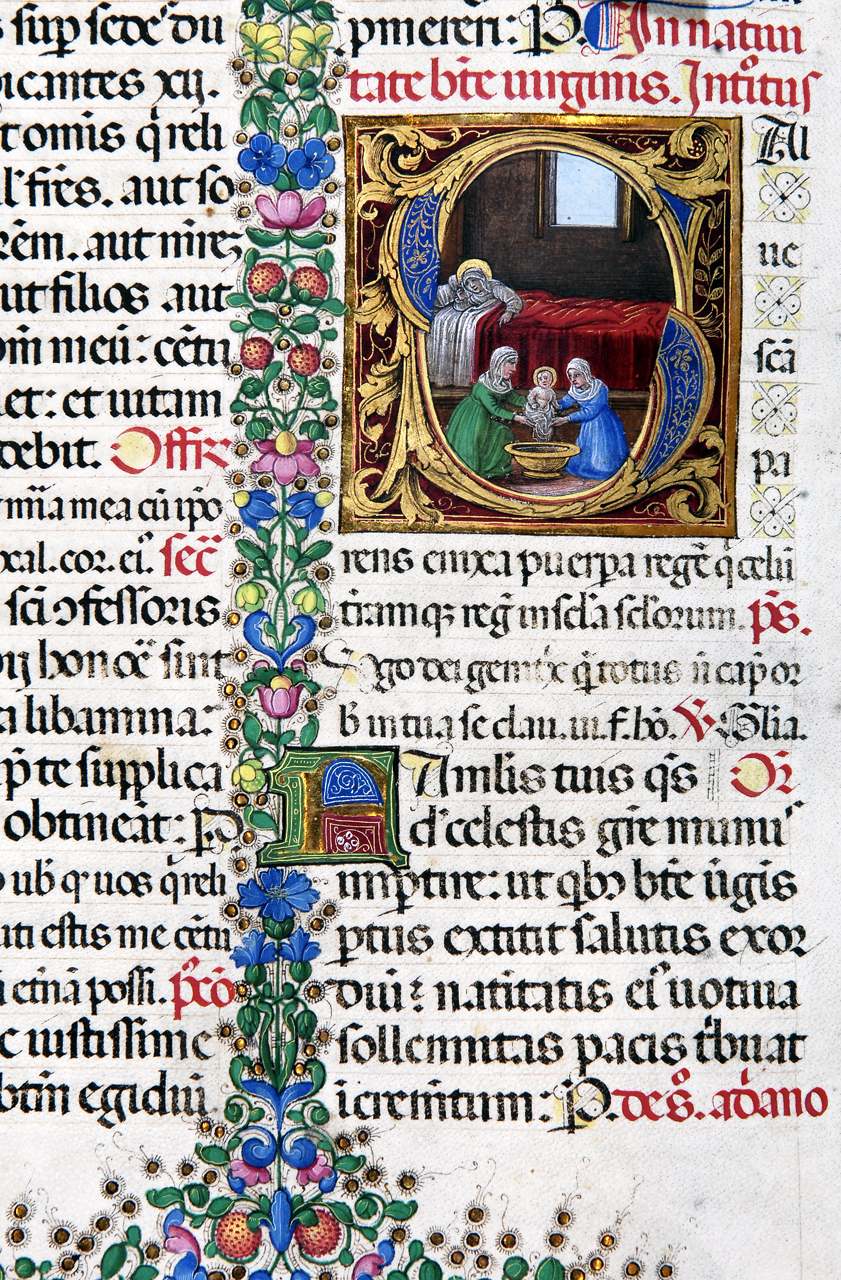 s sup sede᷒ du
dicantes xij.
t omis q̇ reli
l' fr̄es. aut so
rēm. aut mr̄ez
ut filios aut
om̄ meū: cētu
et: et uitam
debit. Offr̄
mīa mea cū ip̄o
xal. cor. ei᷒. sec̄
sc̄i ɔfessoris
hono᷑e sint
libamina:
p̄ te supplica
obtineāt: P̄
ub̄ q᷑ uos q̇ reli
uti estis me cētu
et̄nā possi. p̄rō
c iustissime
b̄tm̄ egidiū
pmereri: P̄. In natiui
tate b̄te uirginis. Introitus
SAl
ue
sc̄ā
pa
rens enixa puerp̱a regē q̇ celū
terramq; reg̃ in sc̄la sc̄lorum. p̄s.
Uirgo dei genitrix q̄ totus n̄ cap̱ or
b̄ in tua se clau. ui. f. ho. V̄. Gl̄ia.
FAmlis tuis q̄s Or̄
d' celestis gr̄e munus
imp̱tire: ut qb᷒ b̄te ūgis
p̱tus extitit salutis exor
diu᷒ natitatis ei᷒ uotiua
sollemnitas pacis t̄buat
īcrem̄tum: P̄. de s̄. adriano